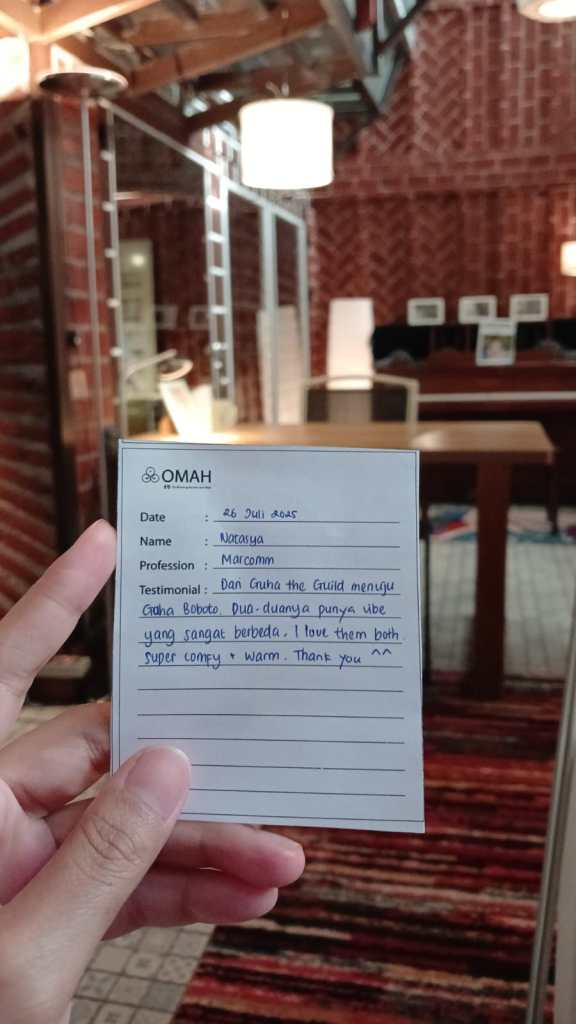 OMAH
Date : 26 Juli 2025
Name : Natasya
Profession : Marcomm
Testimonial : Dari Guha the Guild menuju
Guha Boboto. Dua-duanya punya vibe
yang sangat berbeda. I love them both.
Super comfy + warm. Thank you ^^